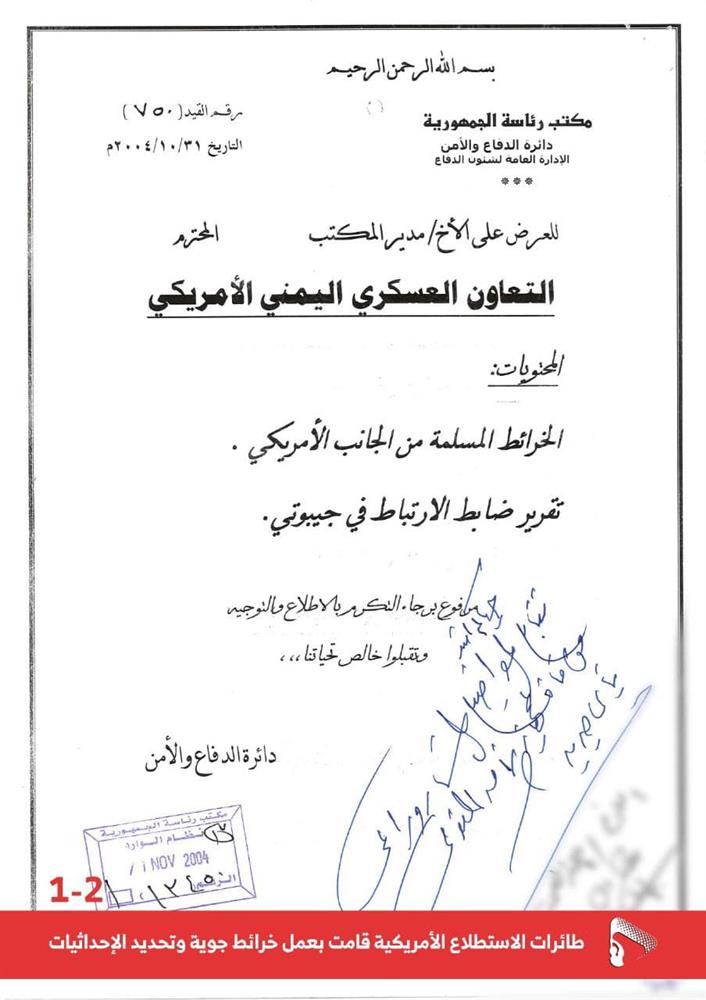 بسم الله الرحمن الرحيم
مكتب رئاسة الجمهورية
دائرة الدفاع والأمن
الإدارة العامة لشئون الدفاع
***
رقم القيد (٧٥٠)
التاريخ ٢٠٠٤/١٠/٣١م
للعرض على الأخ/ مدير المكتب المحترم
التعاون العسكري اليمني الأمريكي
المحتويات:
الخرائط المسلمة من الجانب الأمريكي .
تقرير ضابط الارتباط في جيبوتي.
مرفوع برجاء التكرم بالاطلاع والتوجيه
وتقبلوا خالص تحياتنا ،،،
دائرة الدفاع والأمن
مكتب رئاسة الجمهورية
نظام الوارد
1 NOV 2004
الرقم
1-2
طائرات الاستطلاع الأمريكية قامت بعمل خرائط جوية وتحديد الإحداثيات